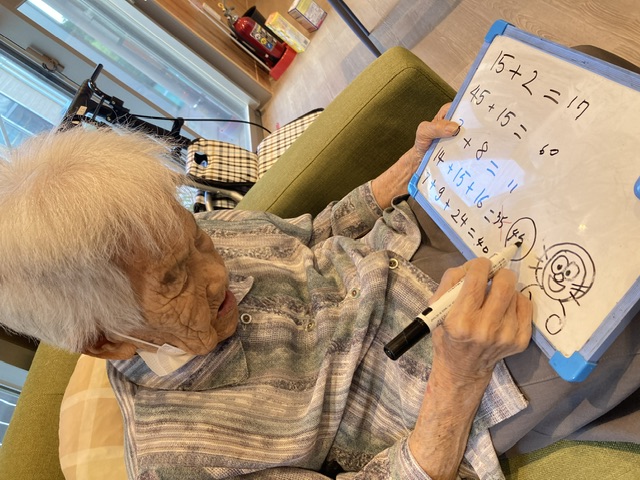 15+2=17
45+15=60
3+8=11
14+15+16=35 (45)
7+9+24=40